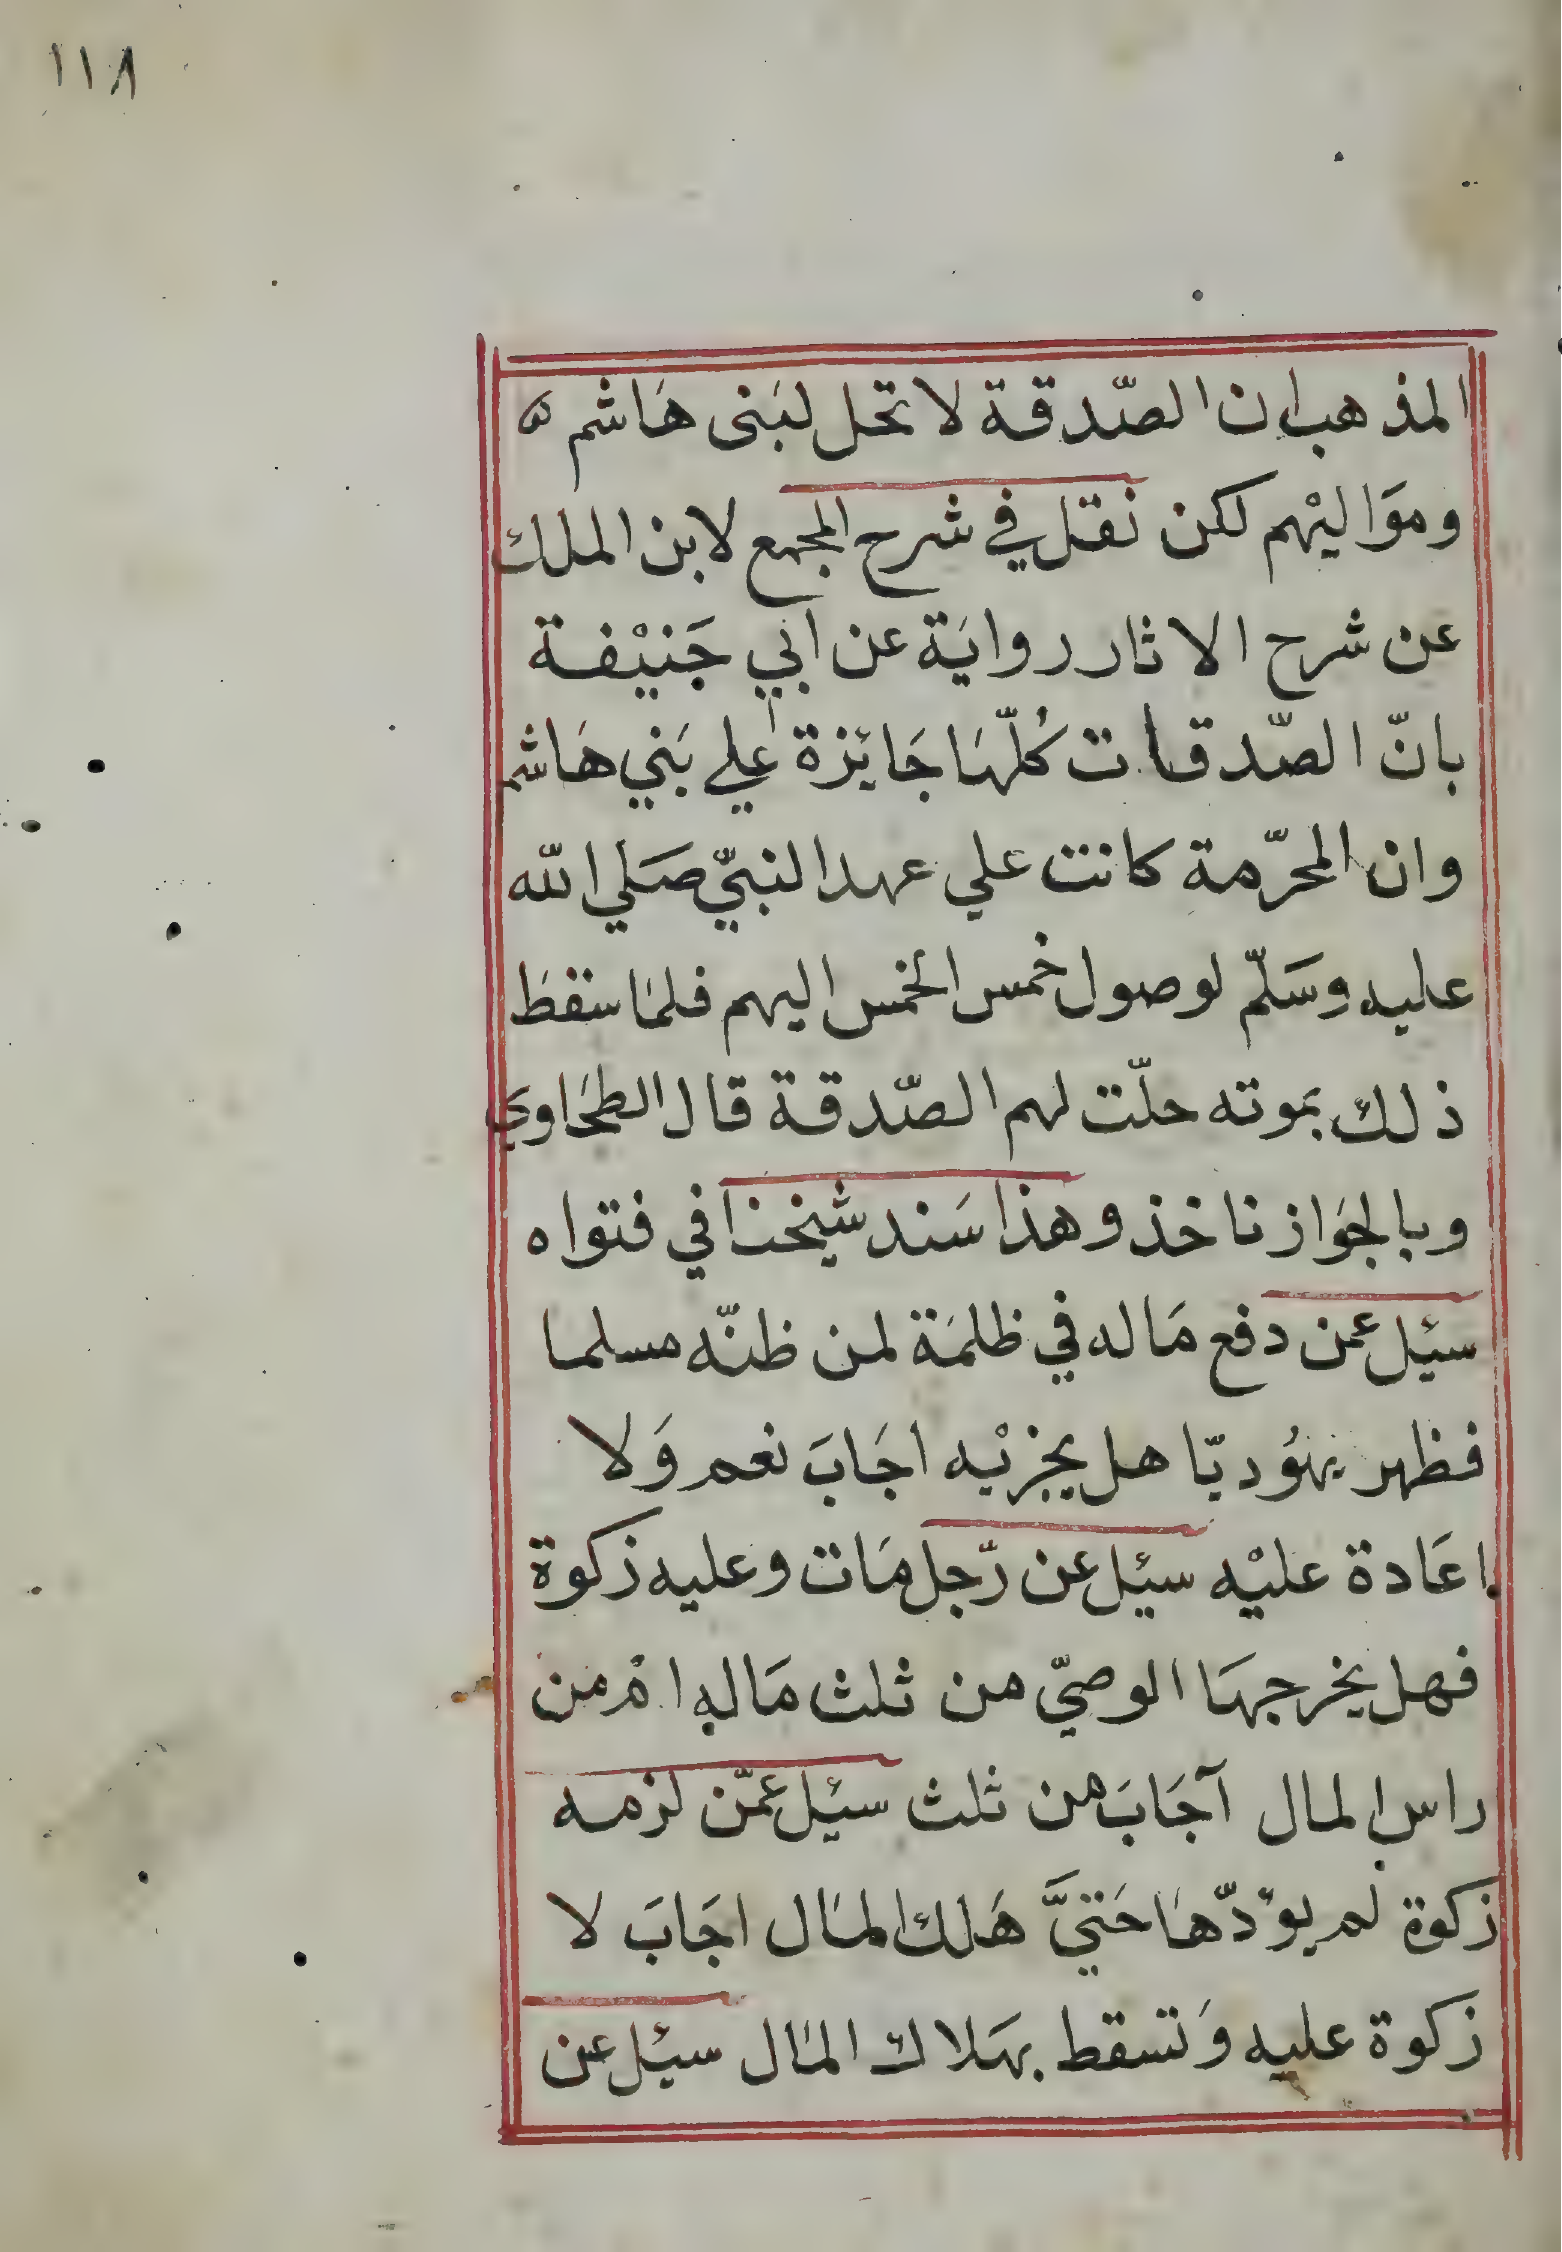 ١١٨
المذهب ان الصّدقة لا تحل لبَنى هَاشم
وموَاليْهم لكن نقل في شرح المجمع لابن الملك
عن شرح الاثار روايَة عن ابي حَنيْفة
بانّ الصّدقات كُلّهَا جَائزة علي بَني هَاشم
وان المحرّمة كانت علي عهد النبيّ صَلي الله
عليه وسَلّم لوصول خمس الخمس اليهم فلمَا سقط
ذلك بموته حلّت لهم الصّدقة قال الطحَاوي
وبالجوَاز ناخذ وهذا سَند شيخنا في فتواه
سئيل عمن دفع مَاله في ظلمَة لمن ظنّه مسلما
فظهر يهُوديّا هل يجزيْه اجَابَ نعم وَلا
اعَادة عليْه سئيل عن رّجل مَات وعليه زكوة
فهل يخرجهَا الوصيّ من ثلث مَاله امْ من
راس المال آجَابَ من ثلث سئيل عمّن لزمه
زكوة لم يؤدّهَا حَتيَّ هَلك المَال اجَابَ لا
زكوة عليه وَتسقط بهَلاك المَال سئيل عن